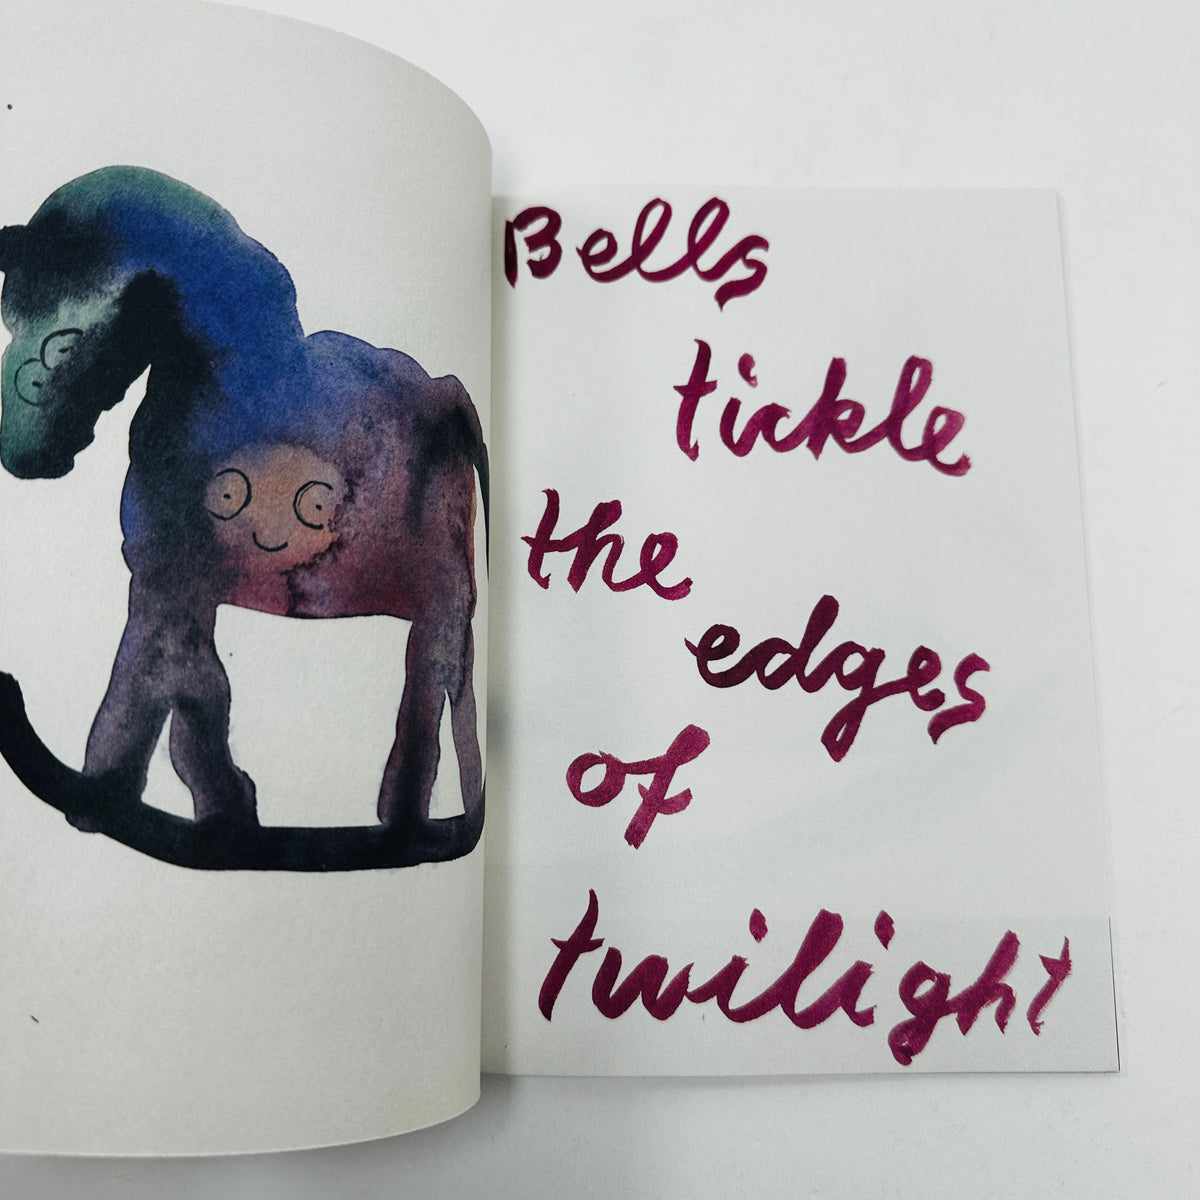 Bells
tickle
the
edges
of
twilight